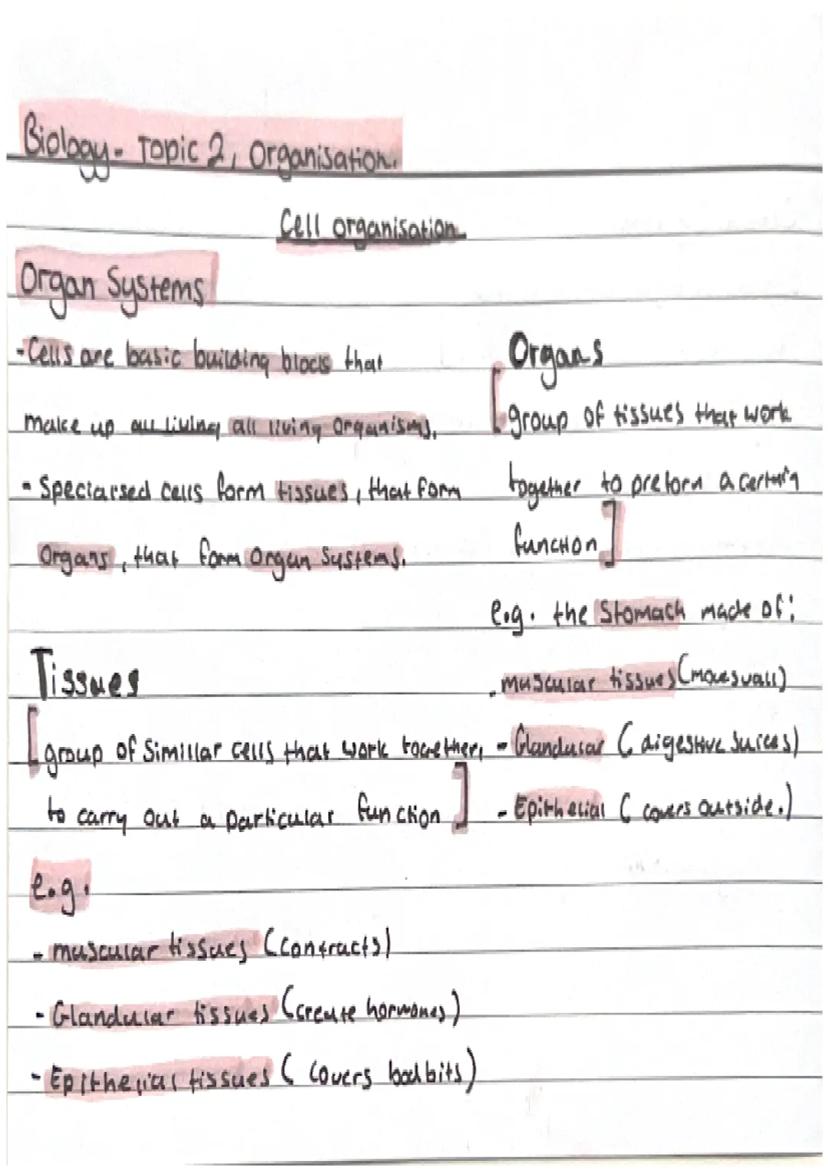 Biology - Topic 2, Organisation.
Cell organisation
Organ Systems
- Cells are basic building blocks that
make up all living all living organisms.
- Speciarsed cells form tissues, that form
Organs, that form Organ Systems.
Tissues
[group of Simillar cells that work together,
to carry out a particular function]
e.g.
- muscular tissues (contracts)
- Glandular tissues (create hormones)
- Epithelial tissues (covers bod bits)
Organs
[group of tissues that work
together to preform a certain
function]
e.g. the Stomach made of:
- muscular tissues (moves wall)
- Glandular (digestive juices)
- Epithelial (covers outside.)